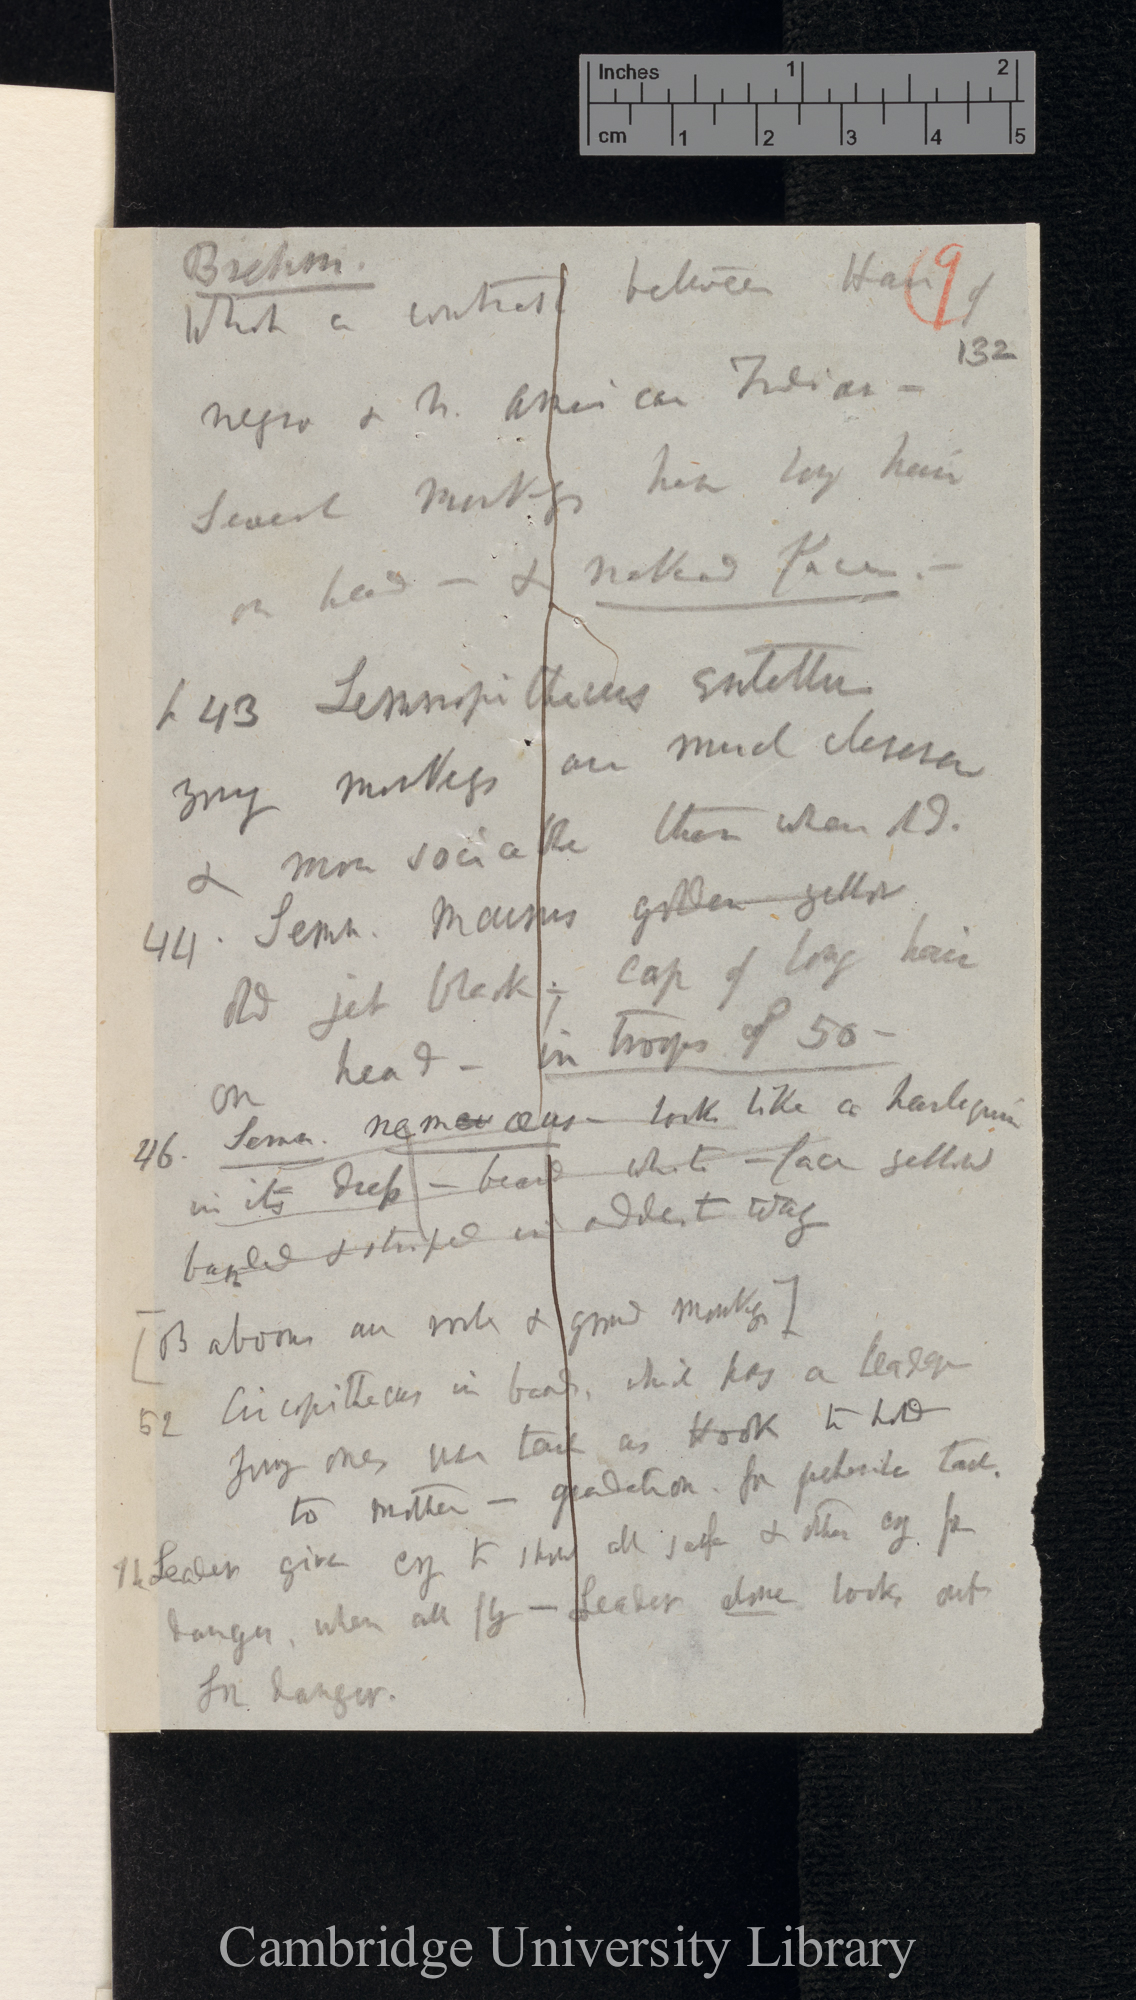 Inches 1 2
cm 1 2 3 4 5
Brehm.
(9
What a contrast between Hair of
132
negro & N. American Indian —
Several monkeys have long hair
on head — & naked faces. —
p 43 Semnopithecus entellus
young monkeys are much cleverer
& more sociable than when old.
44. Semn. maurus golden yellow
old jet black; cap of long hair
on head — in troops of 50 —
46. Semn. nemaeus — looks like a harlequin
in its dress — beard white — face yellow
banded & striped in oddest way
[Baboons are rock & ground monkeys]
52 Cercopithecus in bands, which has a leader
young ones use tail as Hook to hold
to mother — gradation for prehensile tail.
Leader gives cry to show all safe & other cry for
danger, when all fly — Leader alone looks out
for danger.
Cambridge University Library